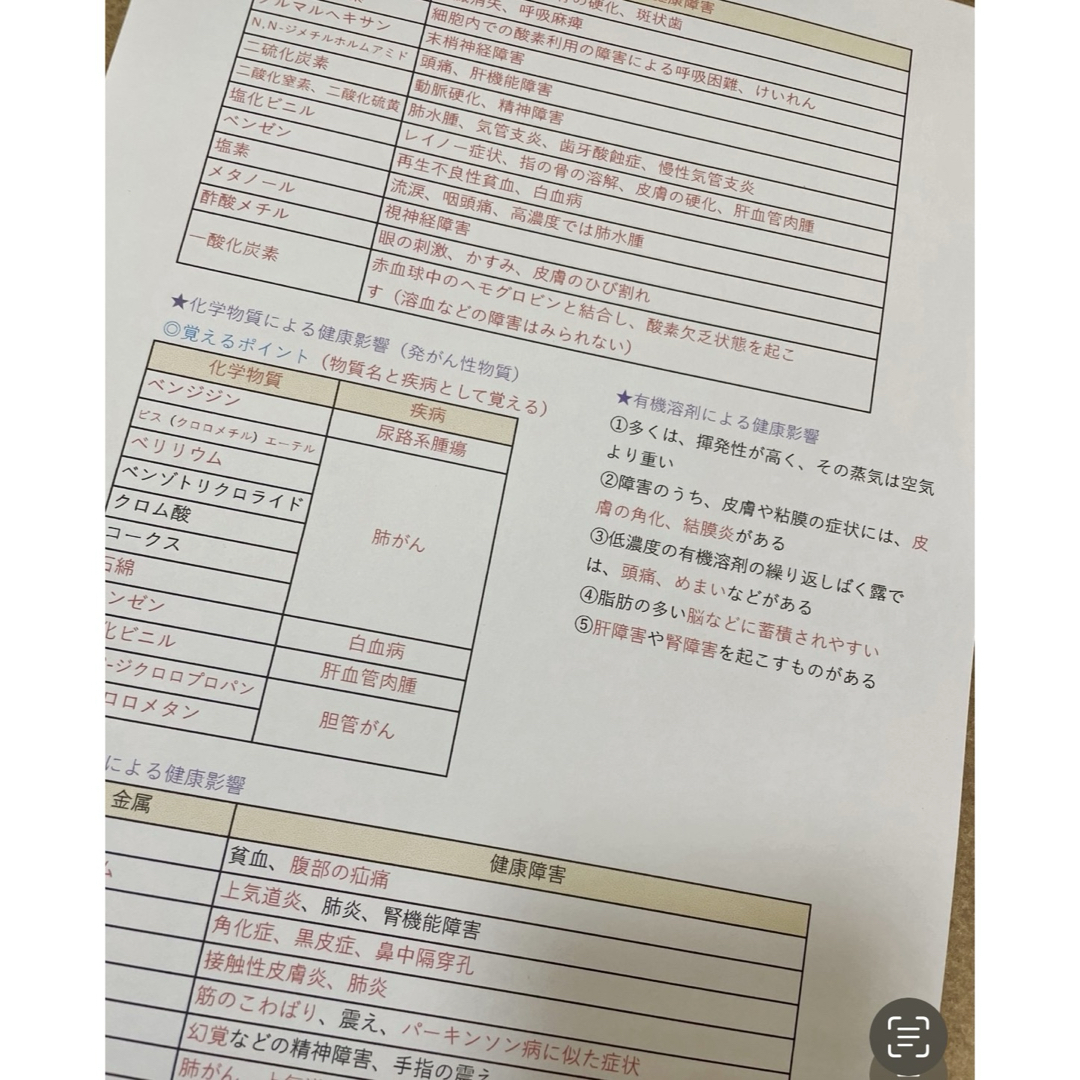 の硬化、斑状歯
消失、呼吸麻痺
ルマルヘキサン
細胞内での酸素利用の障害による呼吸困難、けいれん
N,N-ジメチルホルムアミド
末梢神経障害
二硫化炭素
頭痛、肝機能障害
二酸化窒素、二酸化硫黄
動脈硬化、精神障害
塩化ビニル
肺水腫、気管支炎、歯牙酸蝕症、慢性気管支炎
ベンゼン
レイノー症状、指の骨の溶解、皮膚の硬化、肝血管肉腫
塩素
再生不良性貧血、白血病
メタノール
流涙、咽頭痛、高濃度では肺水腫
酢酸メチル
視神経障害
一酸化炭素
眼の刺激、かすみ、皮膚のひび割れ
赤血球中のヘモグロビンと結合し、酸素欠乏状態を起こ
す（溶血などの障害はみられない）
★化学物質による健康影響（発がん性物質）
◎覚えるポイント（物質名と疾病として覚える）
化学物質
疾病
ベンジジン
尿路系腫瘍
ビス（クロロメチル）エーテル
ベリリウム
ベンゾトリクロライド
クロム酸
コークス
石綿
肺がん
ンゼン
白血病
化ビニル
肝血管肉腫
-ジクロロプロパン
ロロメタン
胆管がん
★有機溶剤による健康影響
①多くは、揮発性が高く、その蒸気は空気
より重い
②障害のうち、皮膚や粘膜の症状には、皮
膚の角化、結膜炎がある
③低濃度の有機溶剤の繰り返しばく露で
は、頭痛、めまいなどがある
④脂肪の多い脳などに蓄積されやすい
⑤肝障害や腎障害を起こすものがある
による健康影響
金属
健康障害
貧血、腹部の疝痛
ム
上気道炎、肺炎、腎機能障害
角化症、黒皮症、鼻中隔穿孔
接触性皮膚炎、肺炎
筋のこわばり、震え、パーキンソン病に似た症状
幻覚などの精神障害、手指の震え
肺がん、上気道